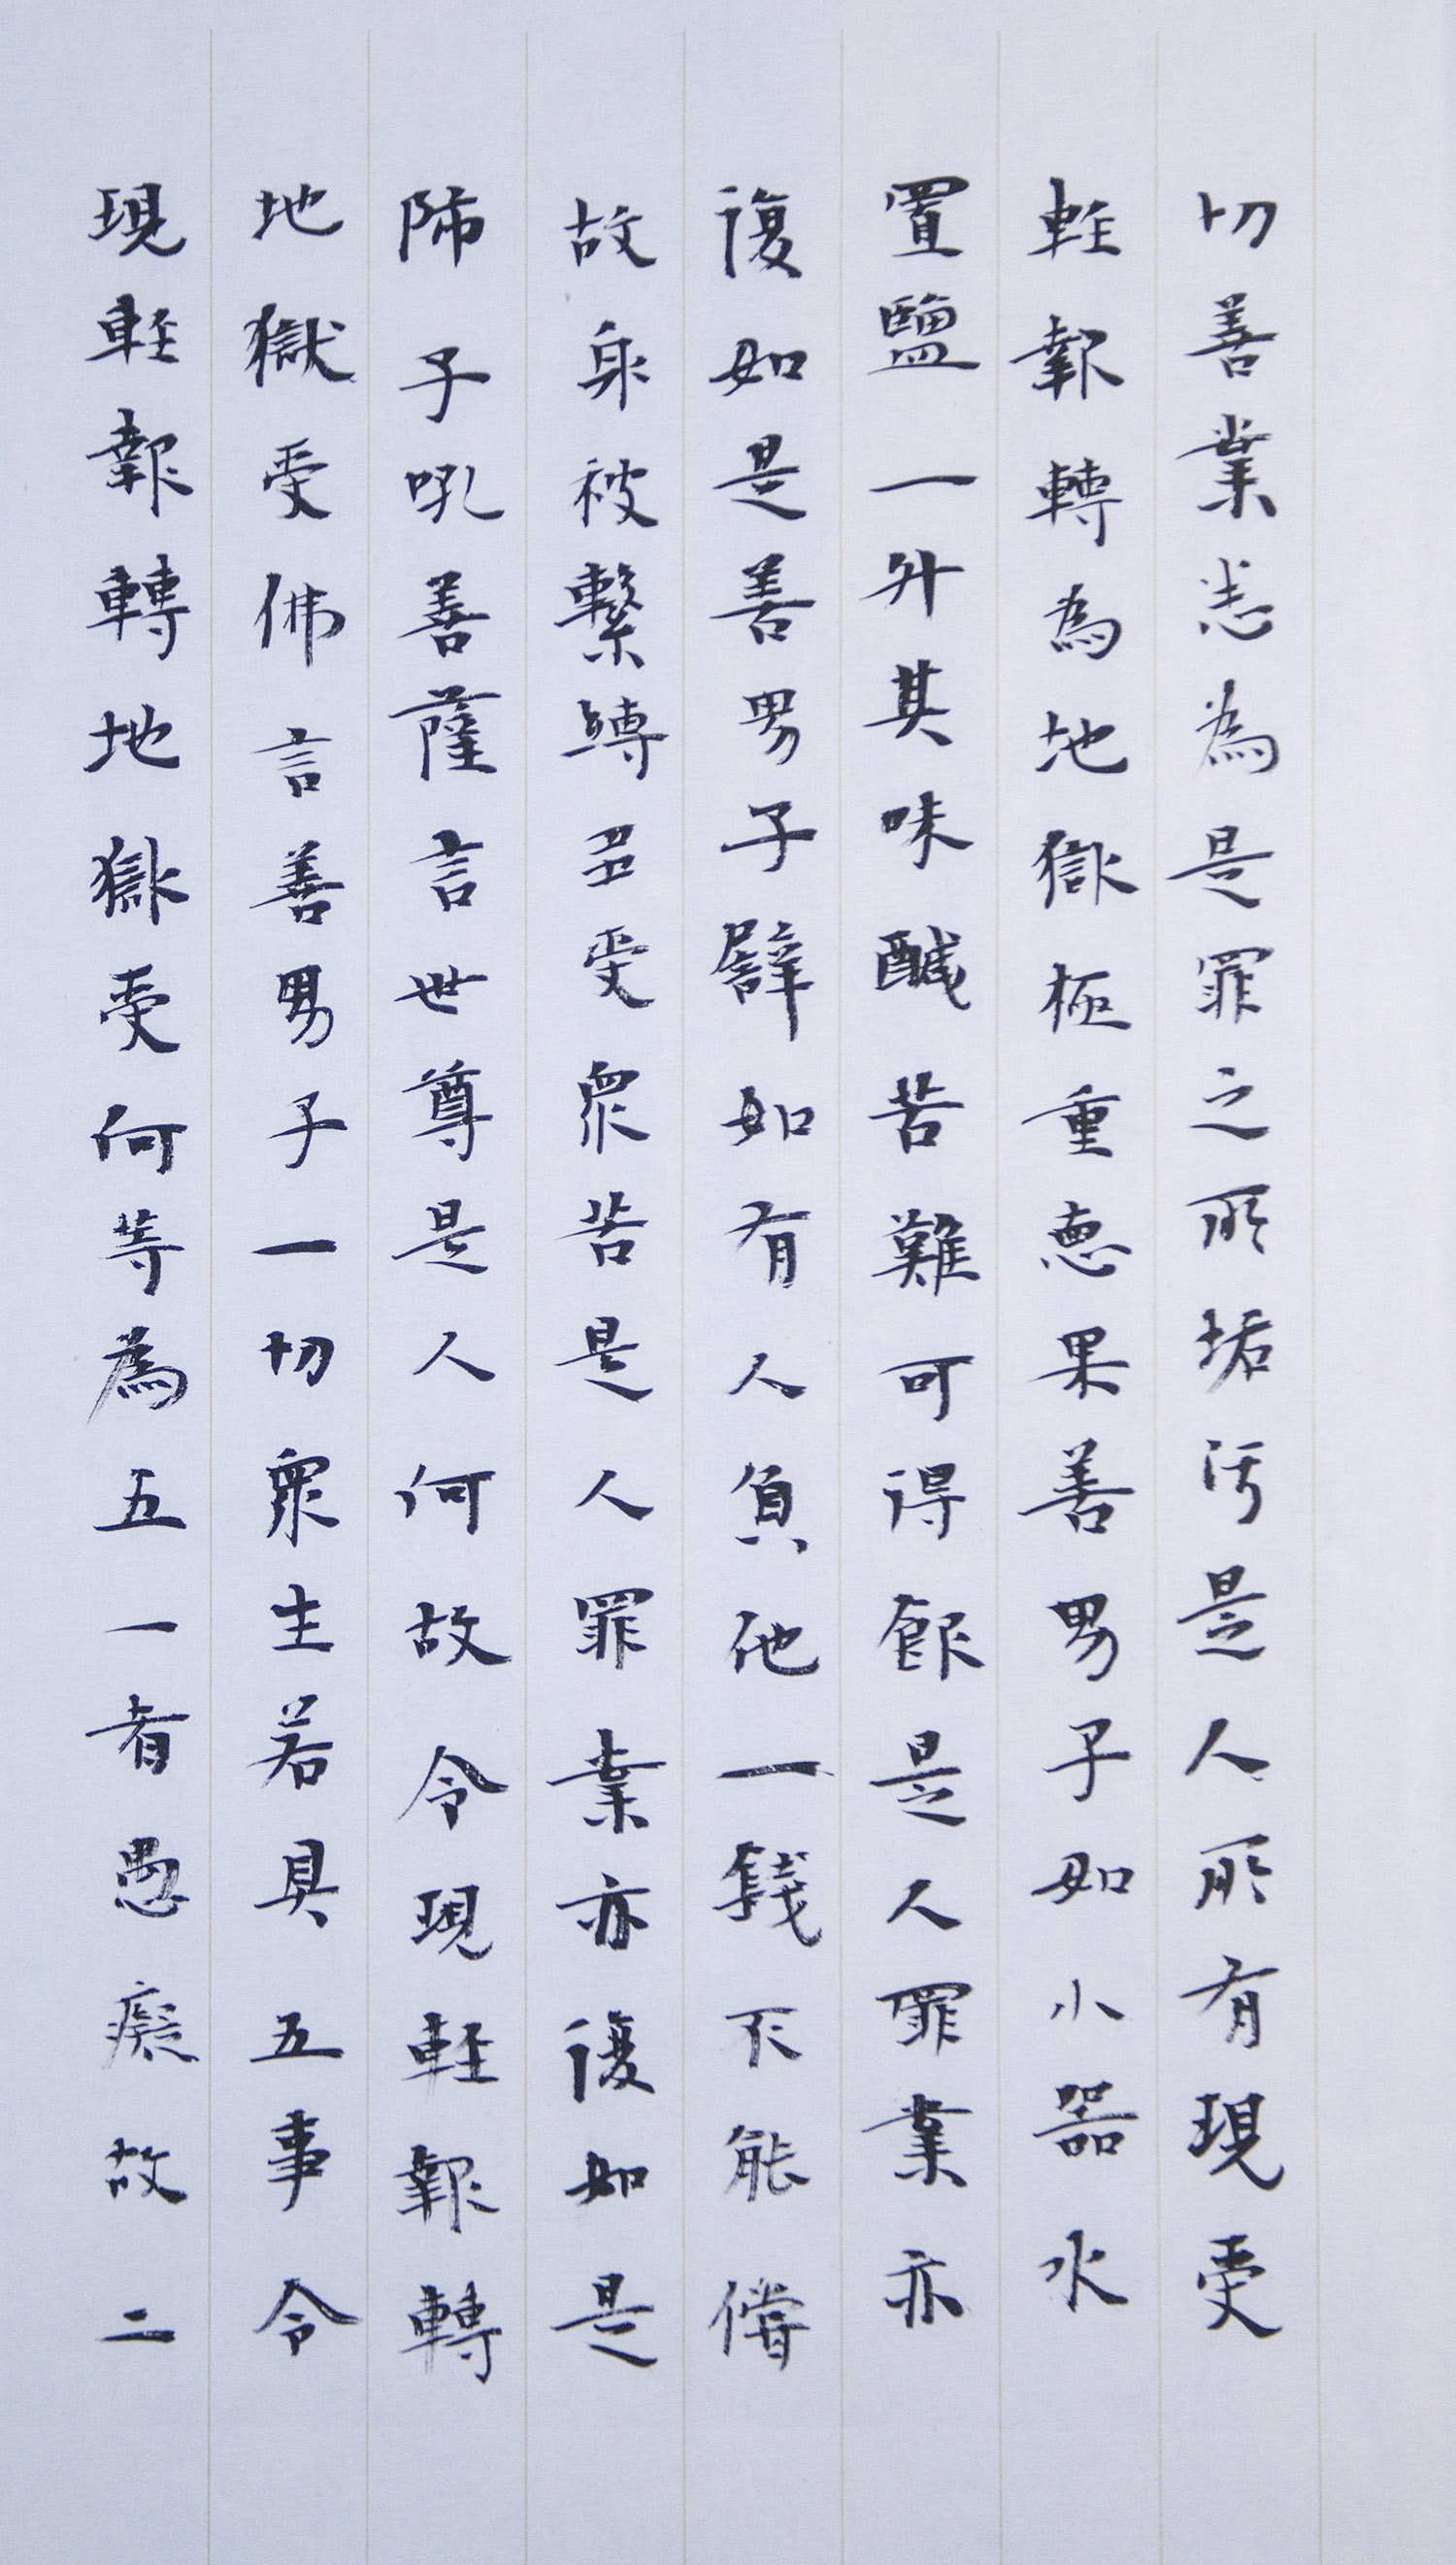 切善業悉為是罪之所垢污是人所有現受
輕報轉為地獄極重惡果善男子如小器水
置鹽一升其味醎苦難可得飲是人罪業亦
復如是善男子譬如有人負他一錢不能償
故身被繫縛多受眾苦是人罪業亦復如是
師子吼菩薩言世尊是人何故令現輕報轉
地獄受佛言善男子一切眾生若具五事令
現輕報轉地獄受何等為五一者愚癡故二